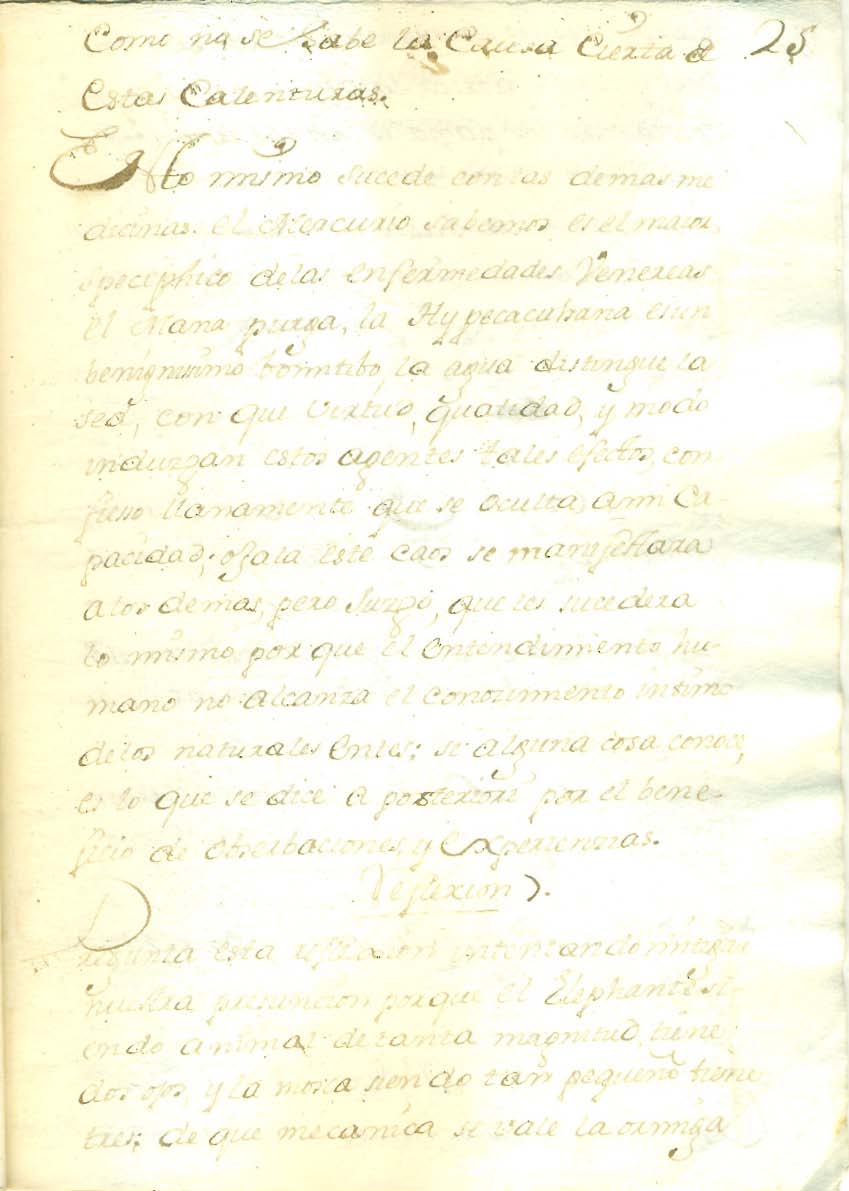 25
Como no se sabe la Causa Cierta de
Estas Calenturas.
Esto mismo sucede con las demas me
dicinas. el Mercurio sabemos es el maior
speciphico delas enfermedades Venereas
el Mana purga, la Hypecacuhana es un
benignisimo bomitibo, la agua distingue la
sed, con que virtud, qualidad, y modo
induzgan estos agentes tales efectos, con
fieso llanamente que se oculta a mi Ca-
pacidad; ojala este caos se manifestara
alos demas, pero Juzgo, que les sucedera
lo mismo por que el entendimiento hu-
mano no alcanza el conozimiento intimo
delos naturales Entes; se alguna cosa conoce,
es lo que se dice a posteriori por el bene-
ficio de obserbaciones, y Experienzias.
Reflexion 7.
Pregunta esta reflexion intentando
nuestra presuncion porque el Elephante si-
endo animal de tanta magnitud, tiene
dos ojos, y la mosca siendo tan pequeño tiene
tres; de que mecanica se vale la ormiga